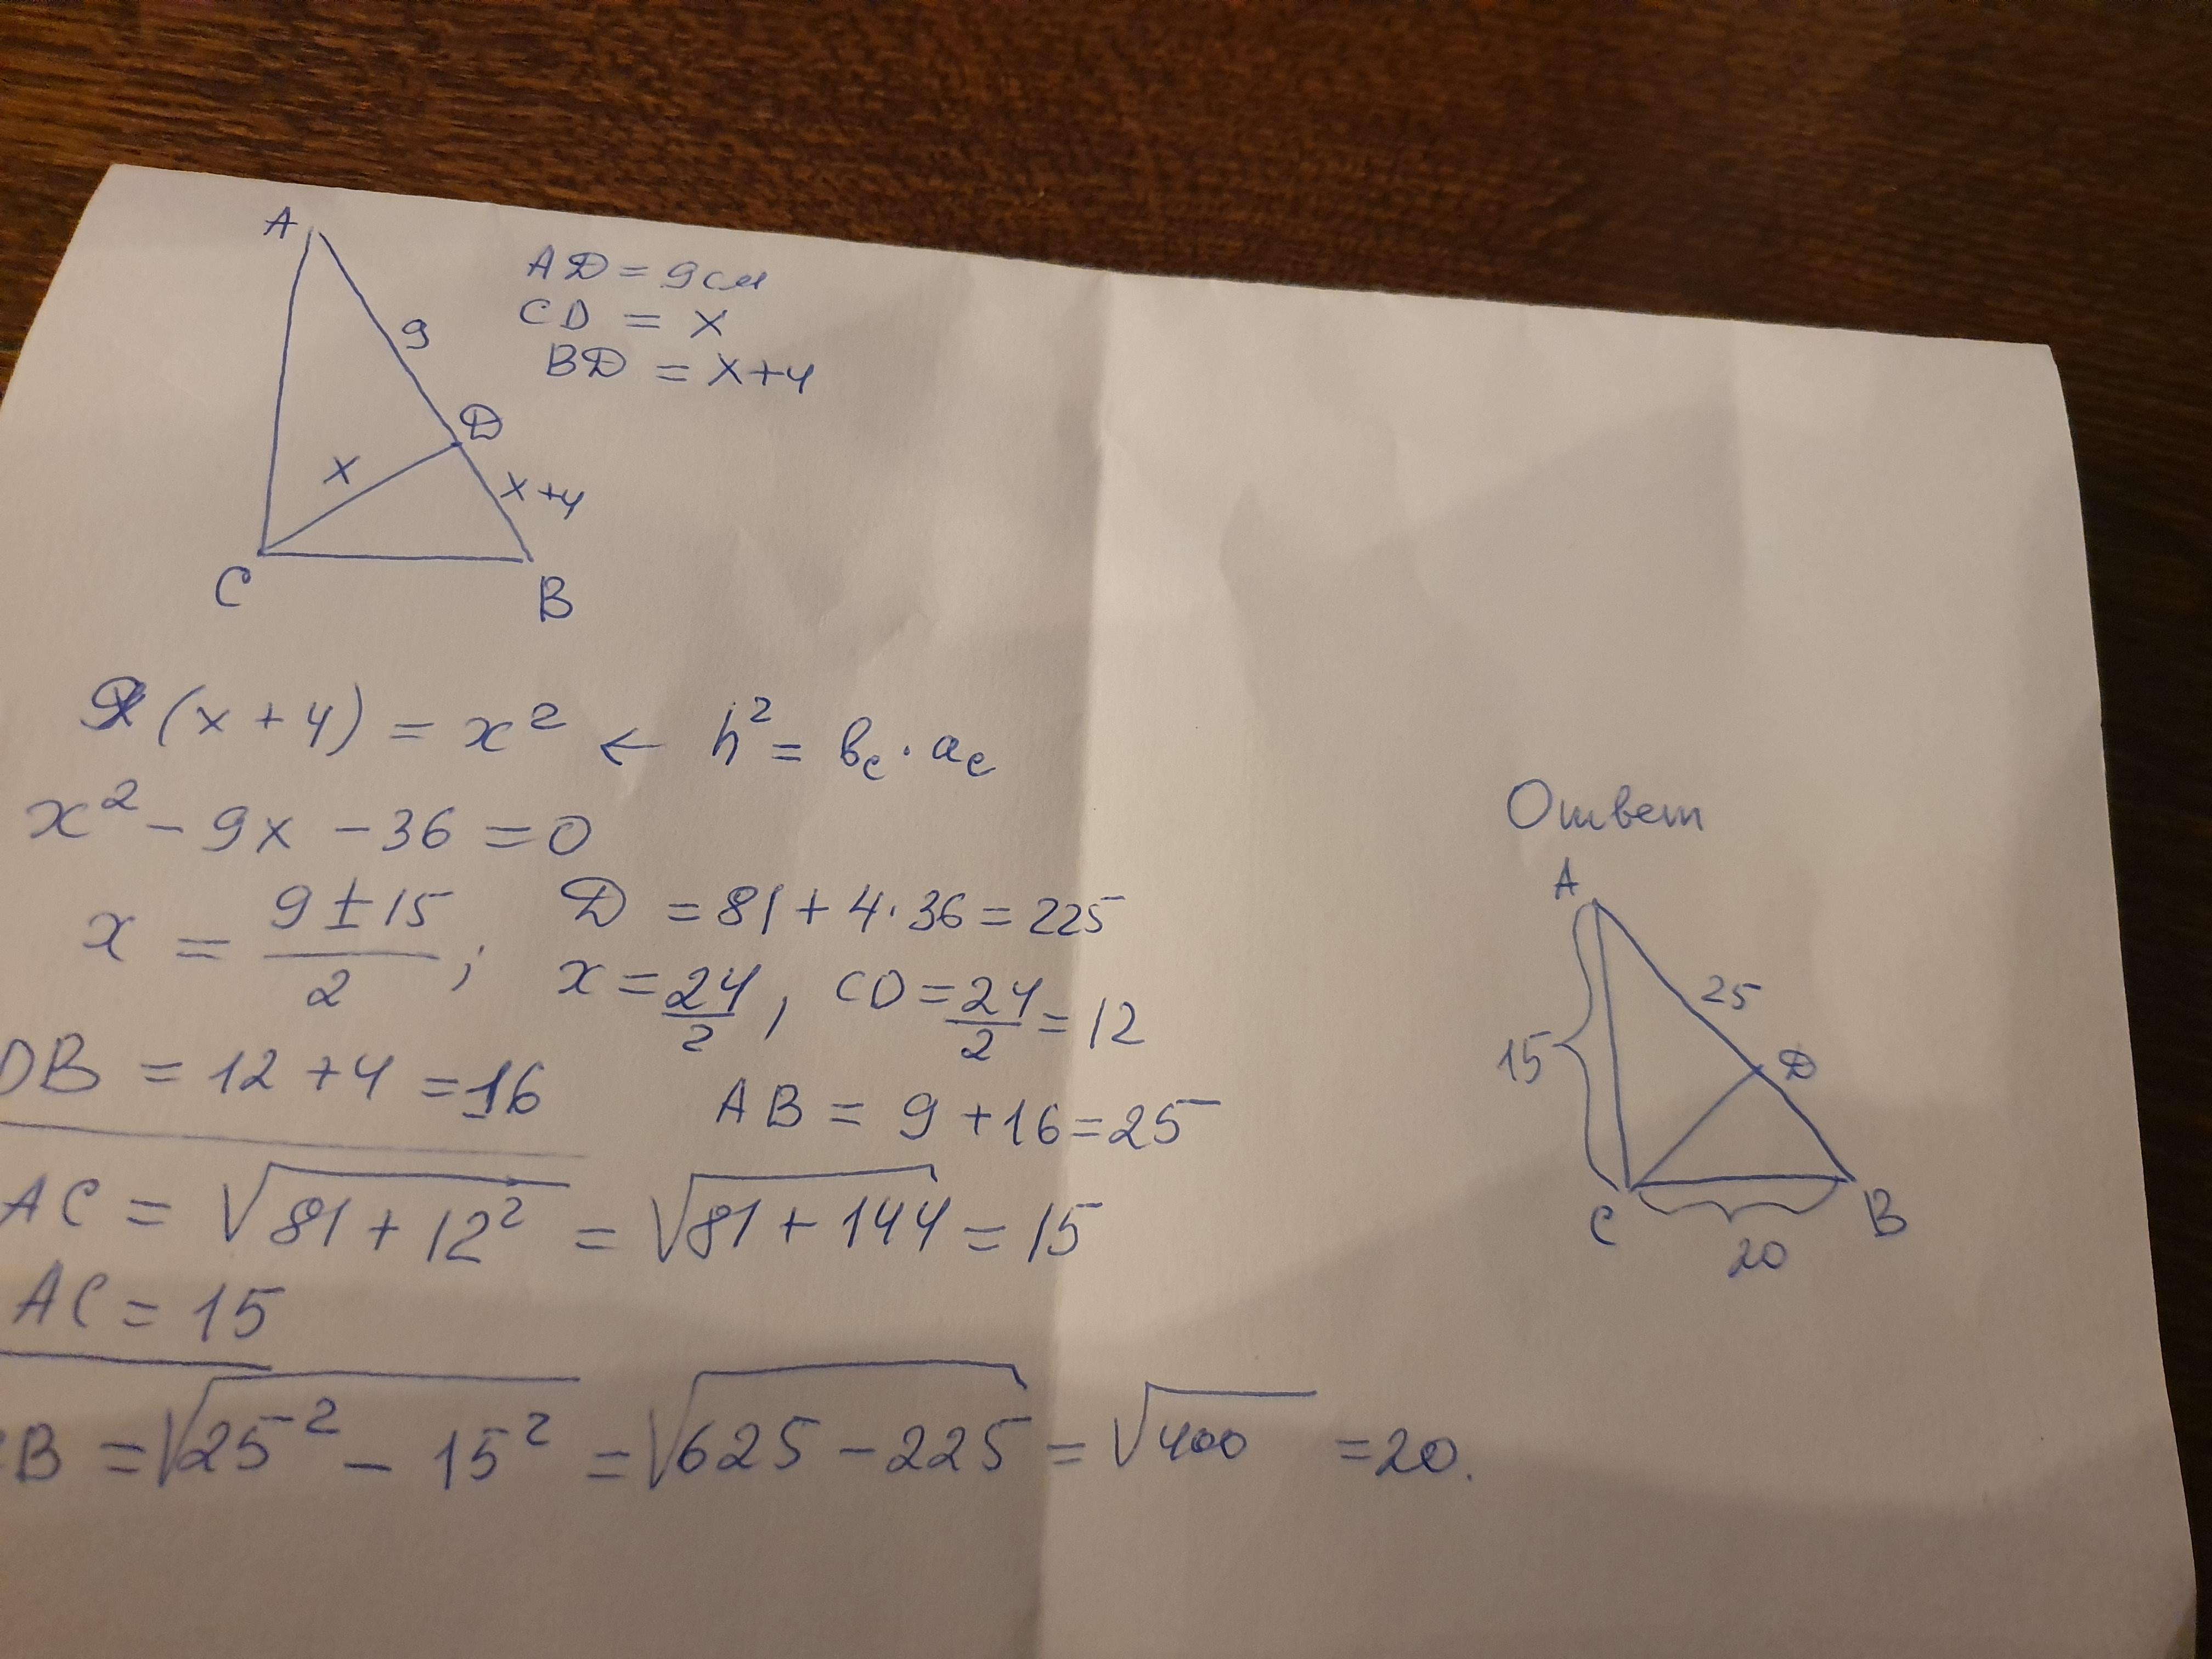 A
AD = 9см
CD = x
BD = x+4
9
D
x
x+4
C
B
9(x+4) = x² ← h² = bc · ac
x² - 9x - 36 = 0
x = (9 ± 15)/2 ; D = 81 + 4·36 = 225
x = 24/2, CD = 24/2 = 12
DB = 12 + 4 = 16
AB = 9 + 16 = 25
AC = √(81 + 12²) = √(81 + 144) = 15
AC = 15
B = √(25² - 15²) = √(625 - 225) = √400 = 20.
Ответ
A
25
15
D
C
B
20